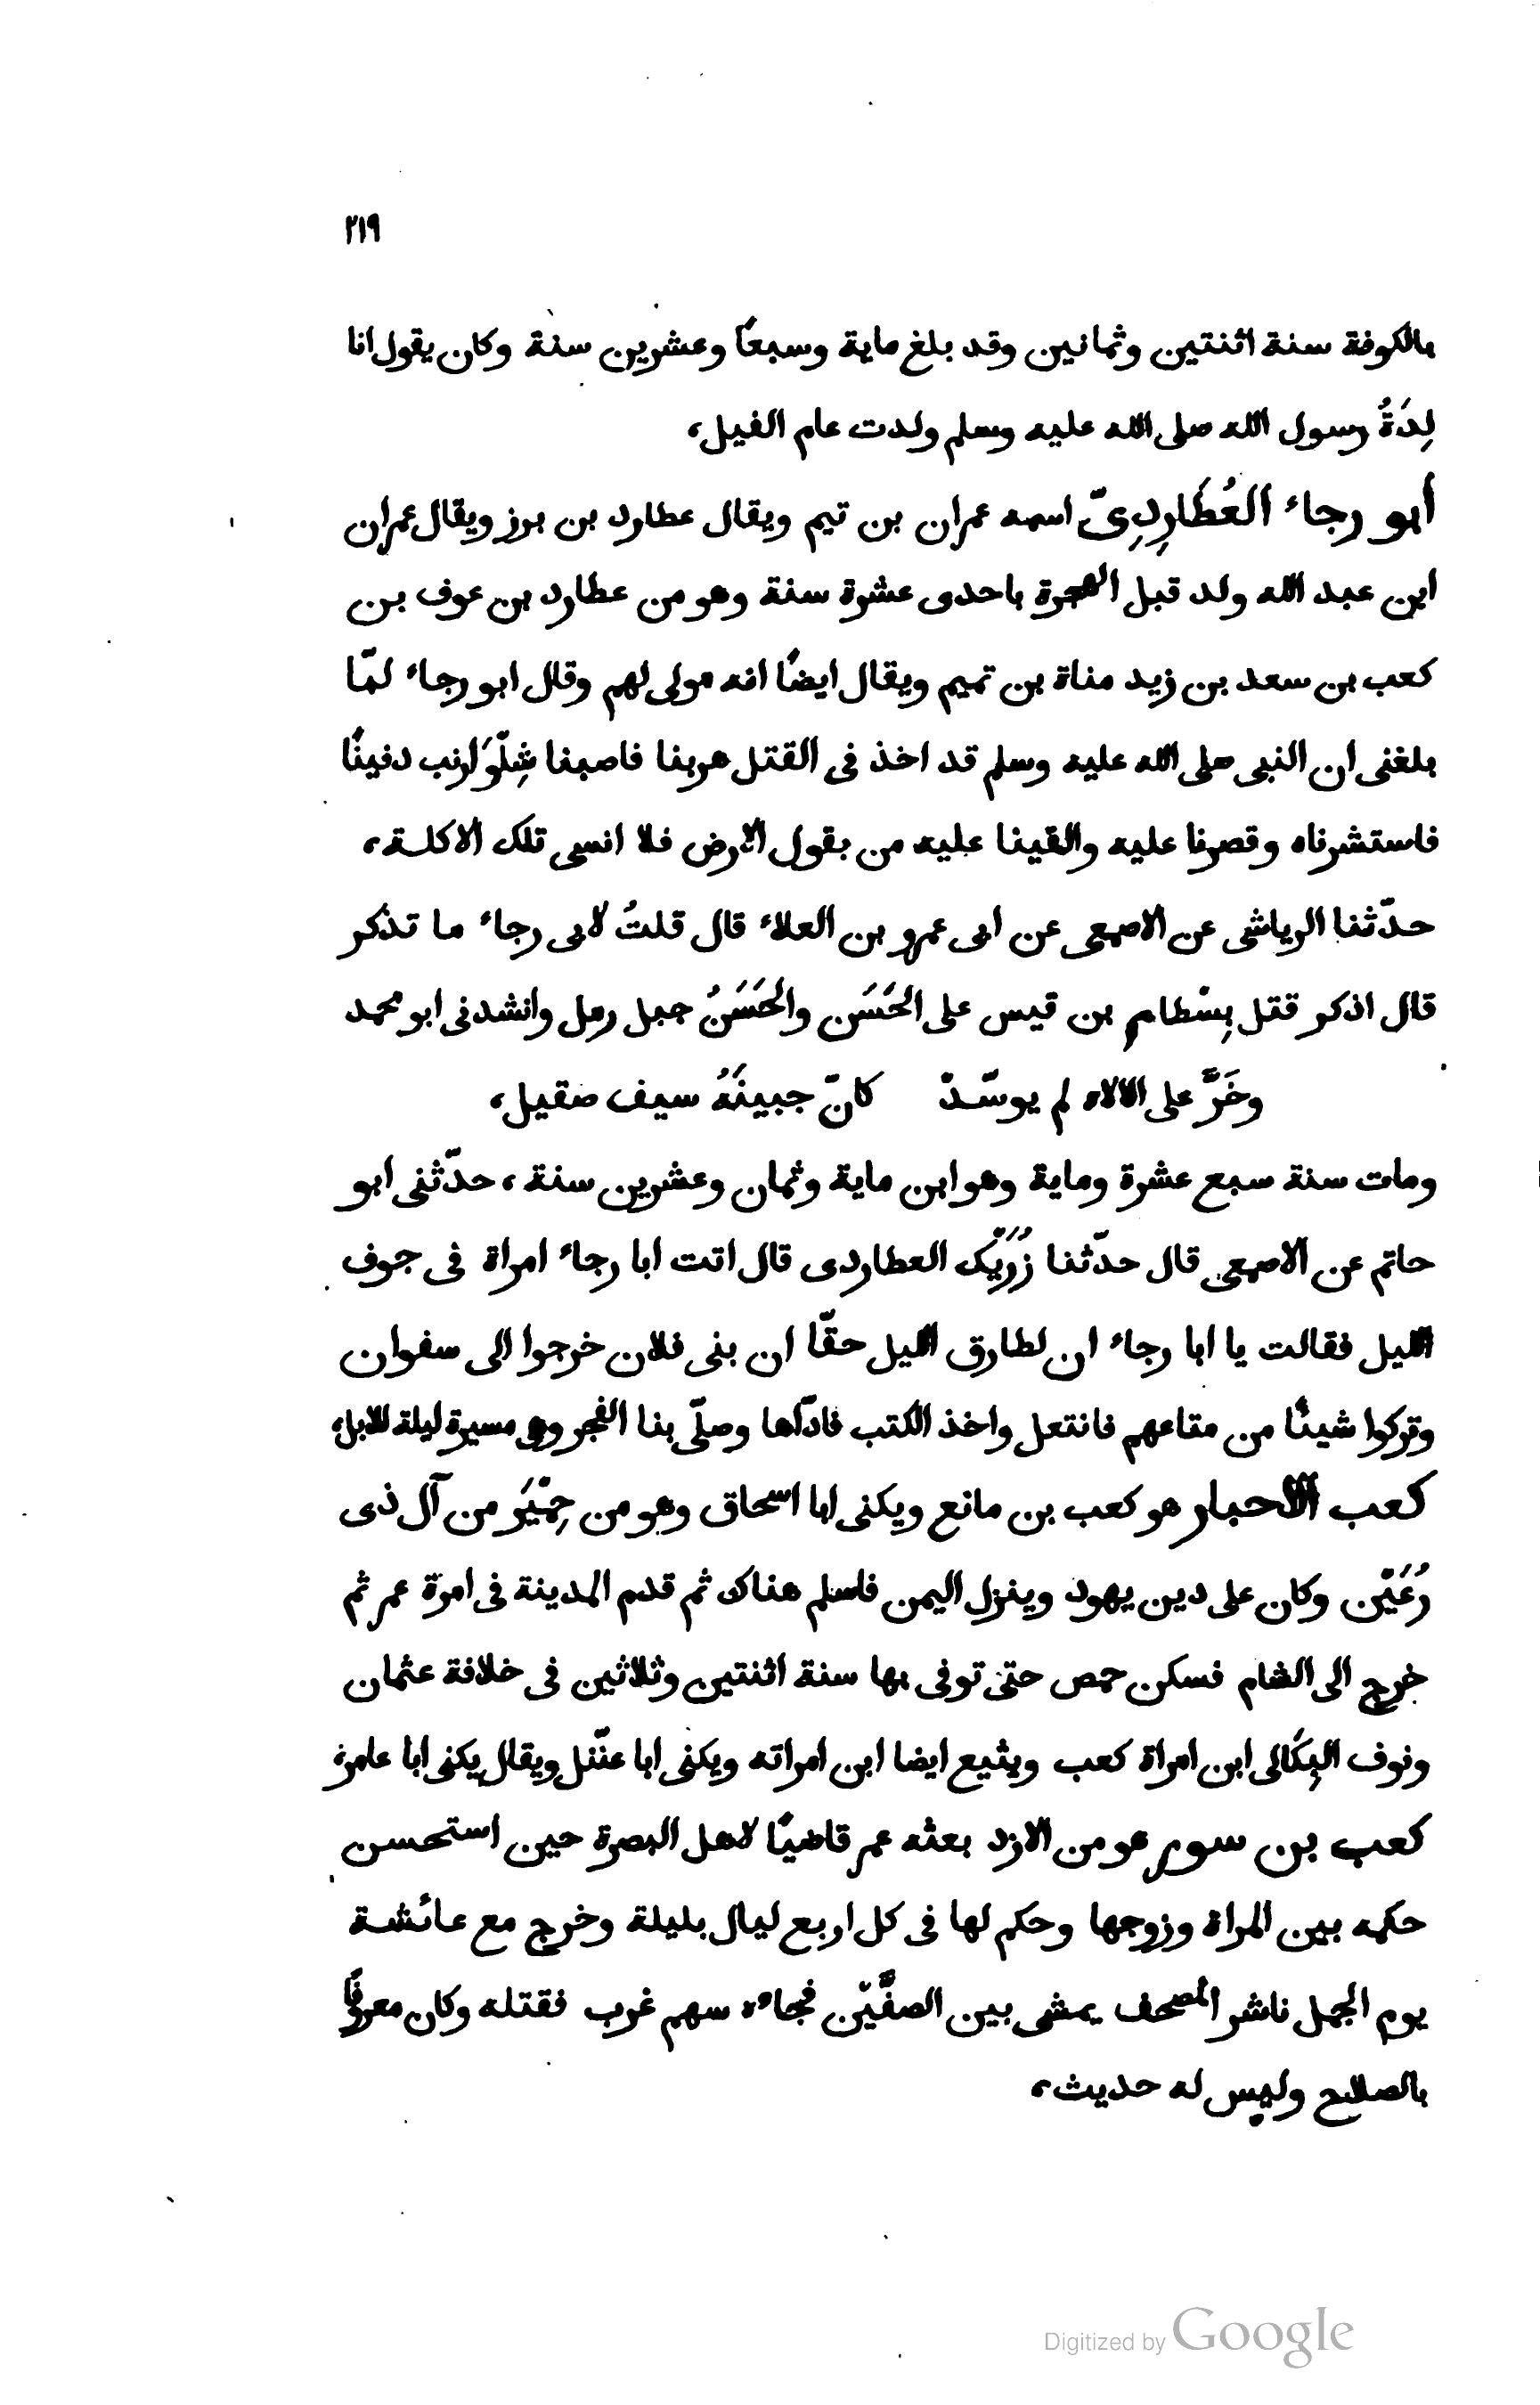 ٢١٩
بالكوفة سنة اثنتين وثمانين وقد بلغ ماية وسبعًا وعشرين سنة وكان يقول انا
لِدَةُ رسول الله صلى الله عليه وسلم ولدت عام الفيل،
أبو رجاء العُطَارِدِىّ اسمه عمران بن تيم ويقال عطارد بن برز ويقال عمران
ابن عبد الله ولد قبل الهجرة باحدى عشرة سنة وهو من عطارد بن عوف بن
كعب بن سعد بن زيد مناة بن تميم ويقال ايضًا انه مولى لهم وقال ابو رجاء لمّا
بلغنى ان النبى صلى الله عليه وسلم قد اخذ فى القتل هربنا فاصبنا شِلْوَ ارنب دفينًا
فاستشرناه وقصرنا عليه والقينا عليه من بقول الارض فلا انسى تلك الاكلة،
حدّثنا الرياشى عن الاصمعى عن ابى عمرو بن العلاء قال قلتُ لابى رجاء ما تذكر
قال اذكر قتل بِسْطام بن قيس على الحَسَن والحَسَنُ جبل رمل وانشدنى ابو محمد
وخَرَّ على الالاه لم يوسّدْ كانّ جبينَهُ سيف صقيل،
ومات سنة سبع عشرة وماية وهو ابن ماية وثمان وعشرين سنة، حدّثنى ابو
حاتم عن الاصمعى قال حدّثنا زُرَيْك العطاردى قال اتت ابا رجاء امراة فى جوف
الليل فقالت يا ابا رجاء ان لطارق الليل حقّا ان بنى فلان خرجوا الى سفوان
وتركوا شيئًا من متاعهم فانتعل واخذ الكتب فادّاها وصلّى بنا الفجر وهى مسيرة ليلة للابل،
كعب الاحبار هو كعب بن مانع ويكنى ابا اسحاق وهو من حِمْيَر من آل ذى
رُعَيْن وكان على دين يهود وينزل اليمن فاسلم هناك ثم قدم المدينة فى امرة عمر ثم
خرج الى الشام فسكن حمص حتى توفى بها سنة اثنتين وثلاثين فى خلافة عثمان
ونوف البِكَالى ابن امراة كعب ويثيع ايضا ابن امراته ويكنى ابا ويقال يكنى ابا عامر،
كعب بن سور هو من الازد بعثه عمر قاضيًا لاهل البصرة حين استحسن
حكمه بين المراة وزوجها وحكم لها فى كل اربع ليال بليلة وخرج مع عائشة
يوم الجمل ناشر المصحف يمشى بين الصفَّيْن فجاءه سهم غرب فقتله وكان معروفًا
بالصلاح وليس له حديث،
Digitized by Google